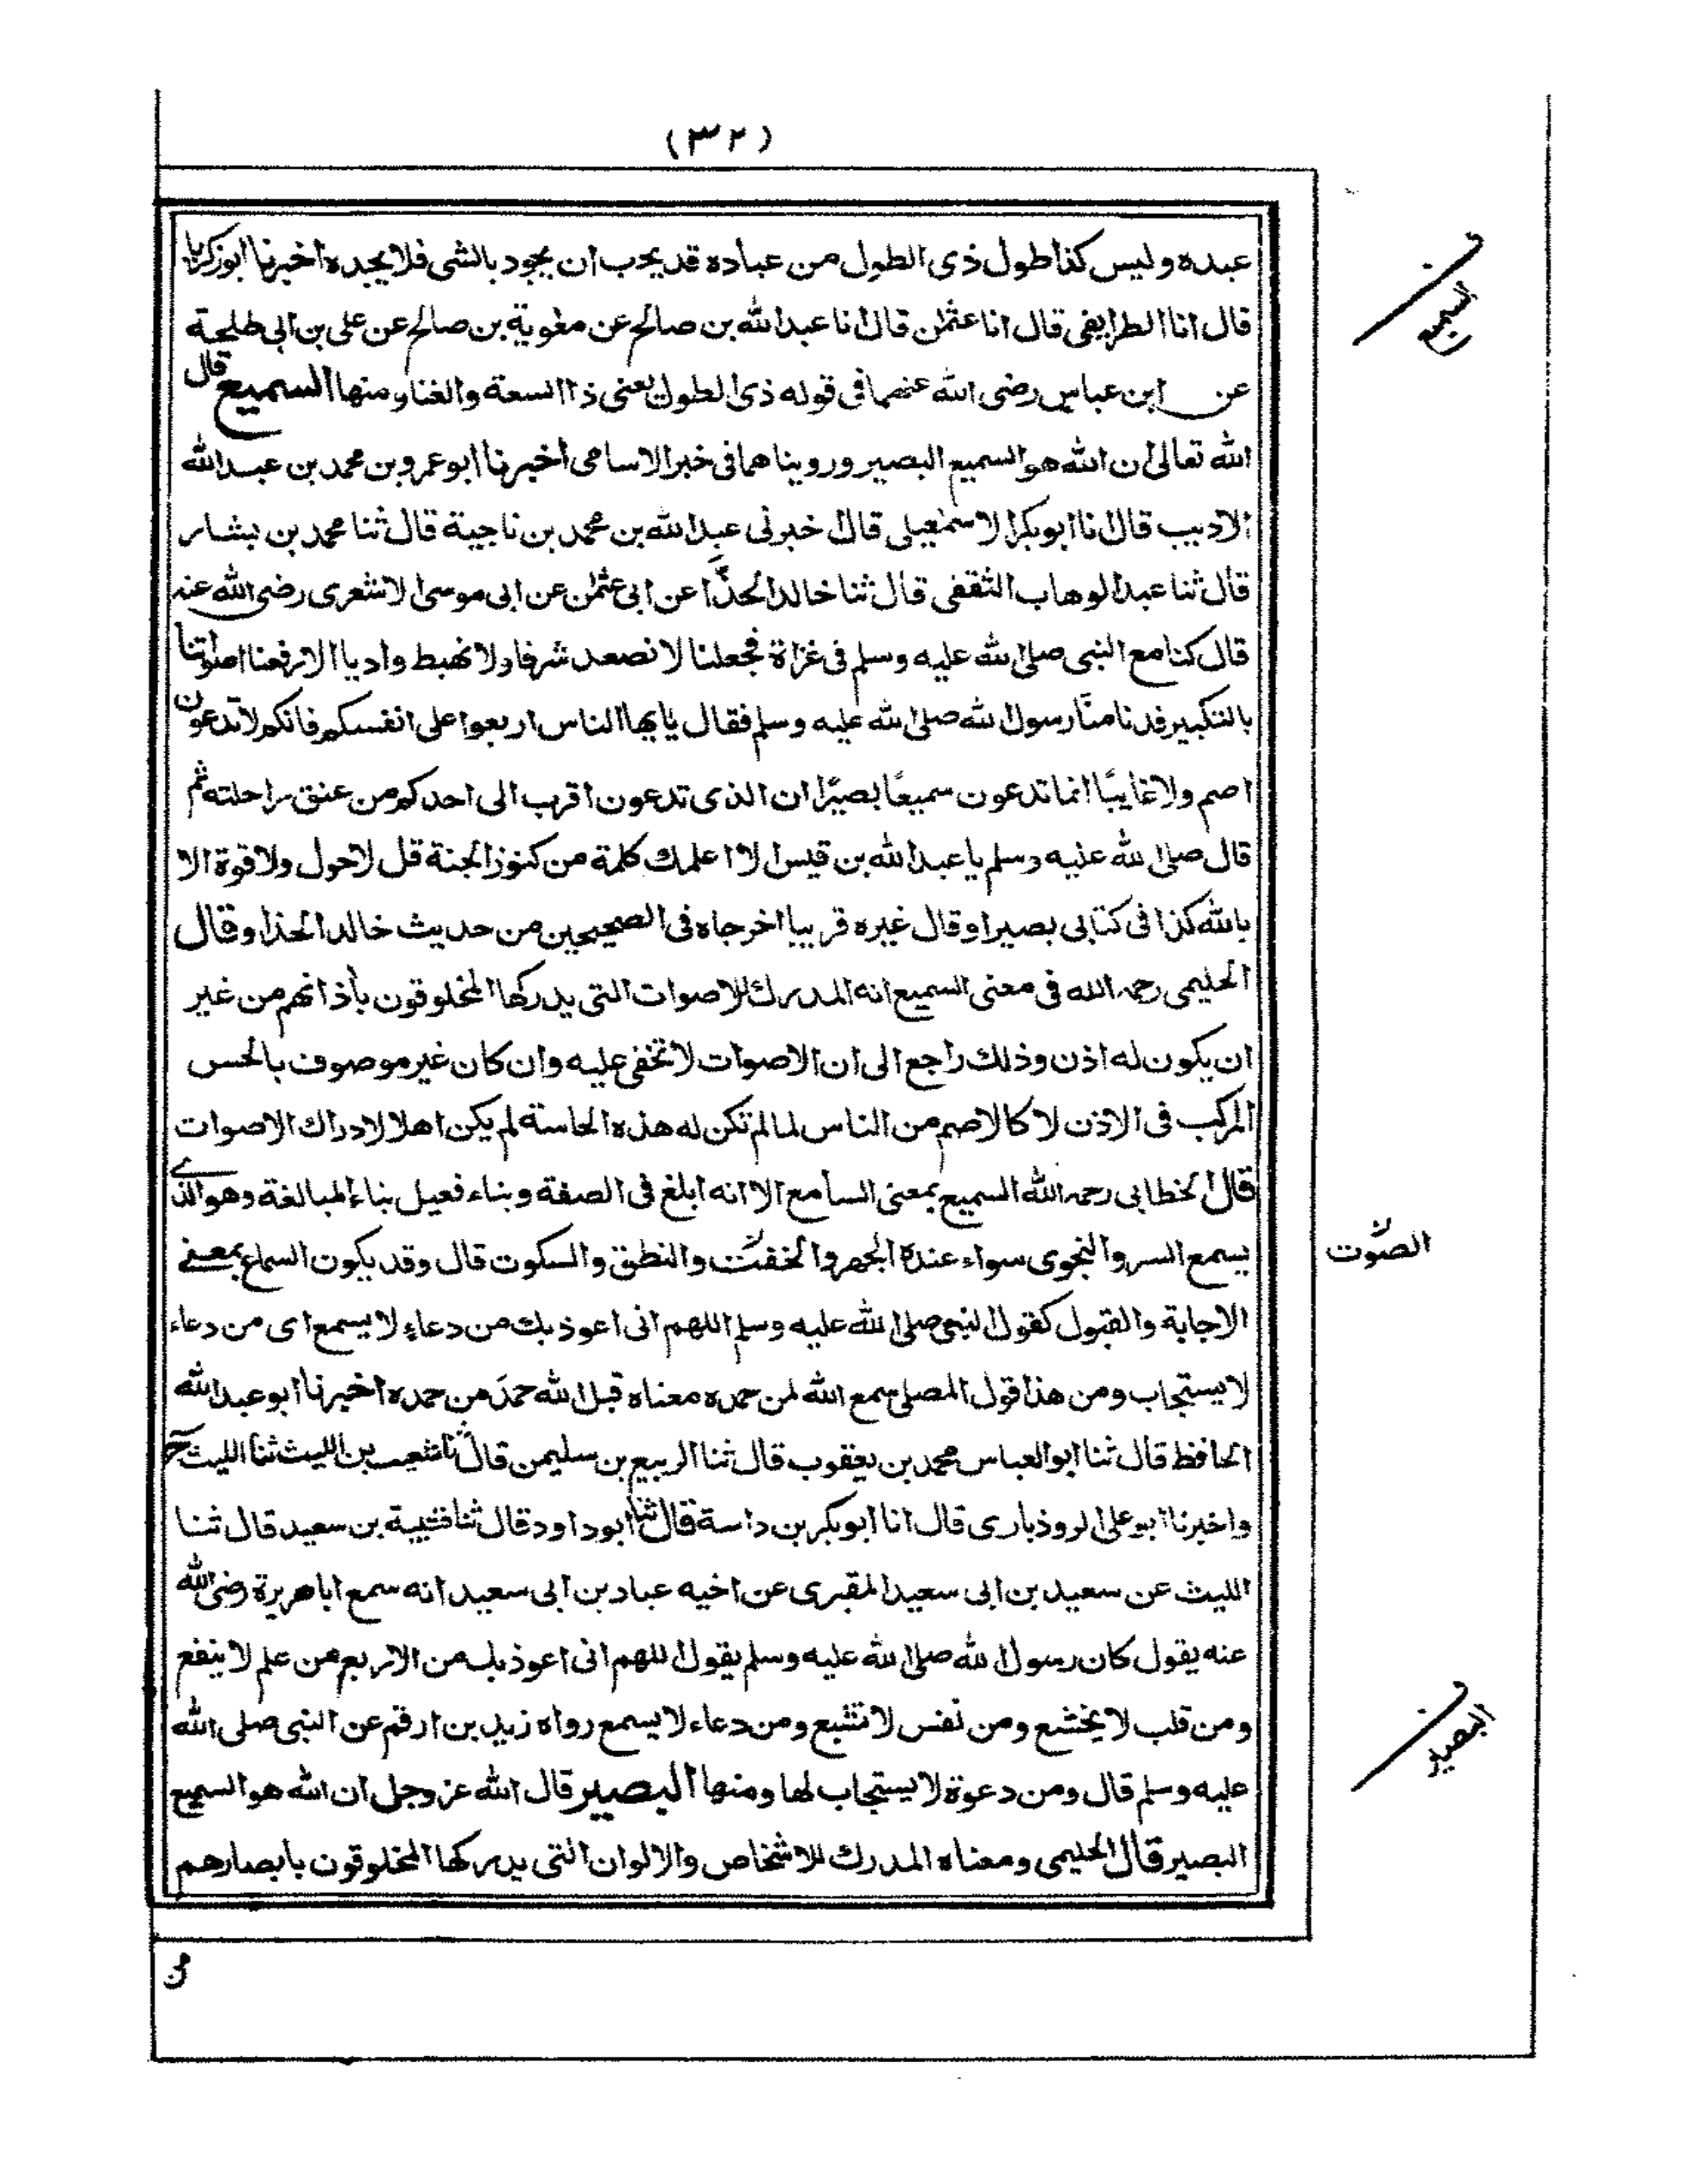 (٣٢)
عبده وليس كذا طول ذى الطول من عباده قد يحب ان يجود بالشى فلا يجده اخبرنا ابو زكريا
قال انا الطرايفى قال انا عثمٰن قال انا عبد الله بن صالح عن معٰوية بن صالح عن على بن ابى طلحة
عن ابن عباس رضى الله عنهما فى قوله ذى الطول يعنى ذا السعة والغنا ومنها السميع قال
الله تعالى ان الله هو السميع البصير وروينا هما فى خبر الاسامى اخبرنا ابو عمرو بن محمد بن عبد الله
الاديب قال انا ابو بكر الاسمٰعيلى قال اخبرنى عبد الله بن محمد بن ناجية قال ثنا محمد بن بشار
قال ثنا عبد الوهاب الثقفى قال ثنا خالد الحذّا عن ابى عثمٰن عن ابى موسى الاشعرى رضى الله عنه
قال كنا مع النبى صلى الله عليه وسلم فى غزاة فجعلنا لا نصعد شرفا ولا نهبط واديا الا رفعنا اصواتنا
بالتكبير فدنا منّا رسول الله صلى الله عليه وسلم فقال يايها الناس اربعوا على انفسكم فانكم لا تدعون
اصم ولا غايبًا انما تدعون سميعًا بصيرًا ان الذى تدعون اقرب الى احدكم من عنق راحلته ثم
قال صلى الله عليه وسلم يا عبد الله بن قيس الا اعلمك كلمة من كنوز الجنة قل لا حول ولا قوة الا
بالله كذا فى كتابى بصيرا وقال غيره قريبا اخرجاه فى الصحيحين من حديث خالد الحذا وقال
الحليمى رحمه الله فى معنى السميع انه المدرك للاصوات التى يدركها المخلوقون بأذانهم من غير
ان يكون له اذن وذلك راجع الى ان الاصوات لا تخفى عليه وان كان غير موصوف بالحس
المركب فى الاذن لا كالاصم من الناس لما لم تكن له هذه الحاسة لم يكن اهلا لادراك الاصوات
قال الخطابى رحمه الله السميع بمعنى السامع الا انه ابلغ فى الصفة وبناء فعيل بناء المبالغة وهو الذى
يسمع السر والنجوى سواء عنده الجهر والخفت والنطق والسكوت قال وقد يكون السماع بمعنى
الصوت
الاجابة والقبول كقول النبى صلى الله عليه وسلم اللهم انى اعوذ بك من دعاءٍ لا يسمع اى من دعاء
لا يستجاب ومن هذا قول المصلى سمع الله لمن حمده معناه قبل الله حمدَ من حمده اخبرنا ابو عبد الله
الحافظ قال ثنا ابو العباس محمد بن يعقوب قال ثنا الربيع بن سليمن قال ثنا شعيب بن الليث ثنا الليث ح
واخبرنا ابو على الروذبارى قال انا ابو بكر بن داسة قال ثنا ابو داود قال ثنا قتيبة بن سعيد قال ثنا
الليث عن سعيد بن ابى سعيد المقبرى عن اخيه عباد بن ابى سعيد انه سمع ابا هريرة رضى الله
عنه يقول كان رسول الله صلى الله عليه وسلم يقول اللهم انى اعوذ بك من الاربع من علم لا ينفع
ومن قلب لا يخشع ومن نفس لا تشبع ومن دعاء لا يسمع رواه زيد بن ارقم عن النبى صلى الله
عليه وسلم قال ومن دعوة لا يستجاب لها ومنها البصير قال الله عز وجل ان الله هو السميع
البصير قال الحليمى ومعناه المدرك للاشخاص والالوان التى يدركها المخلوقون بابصارهم
السميع
البصير
من